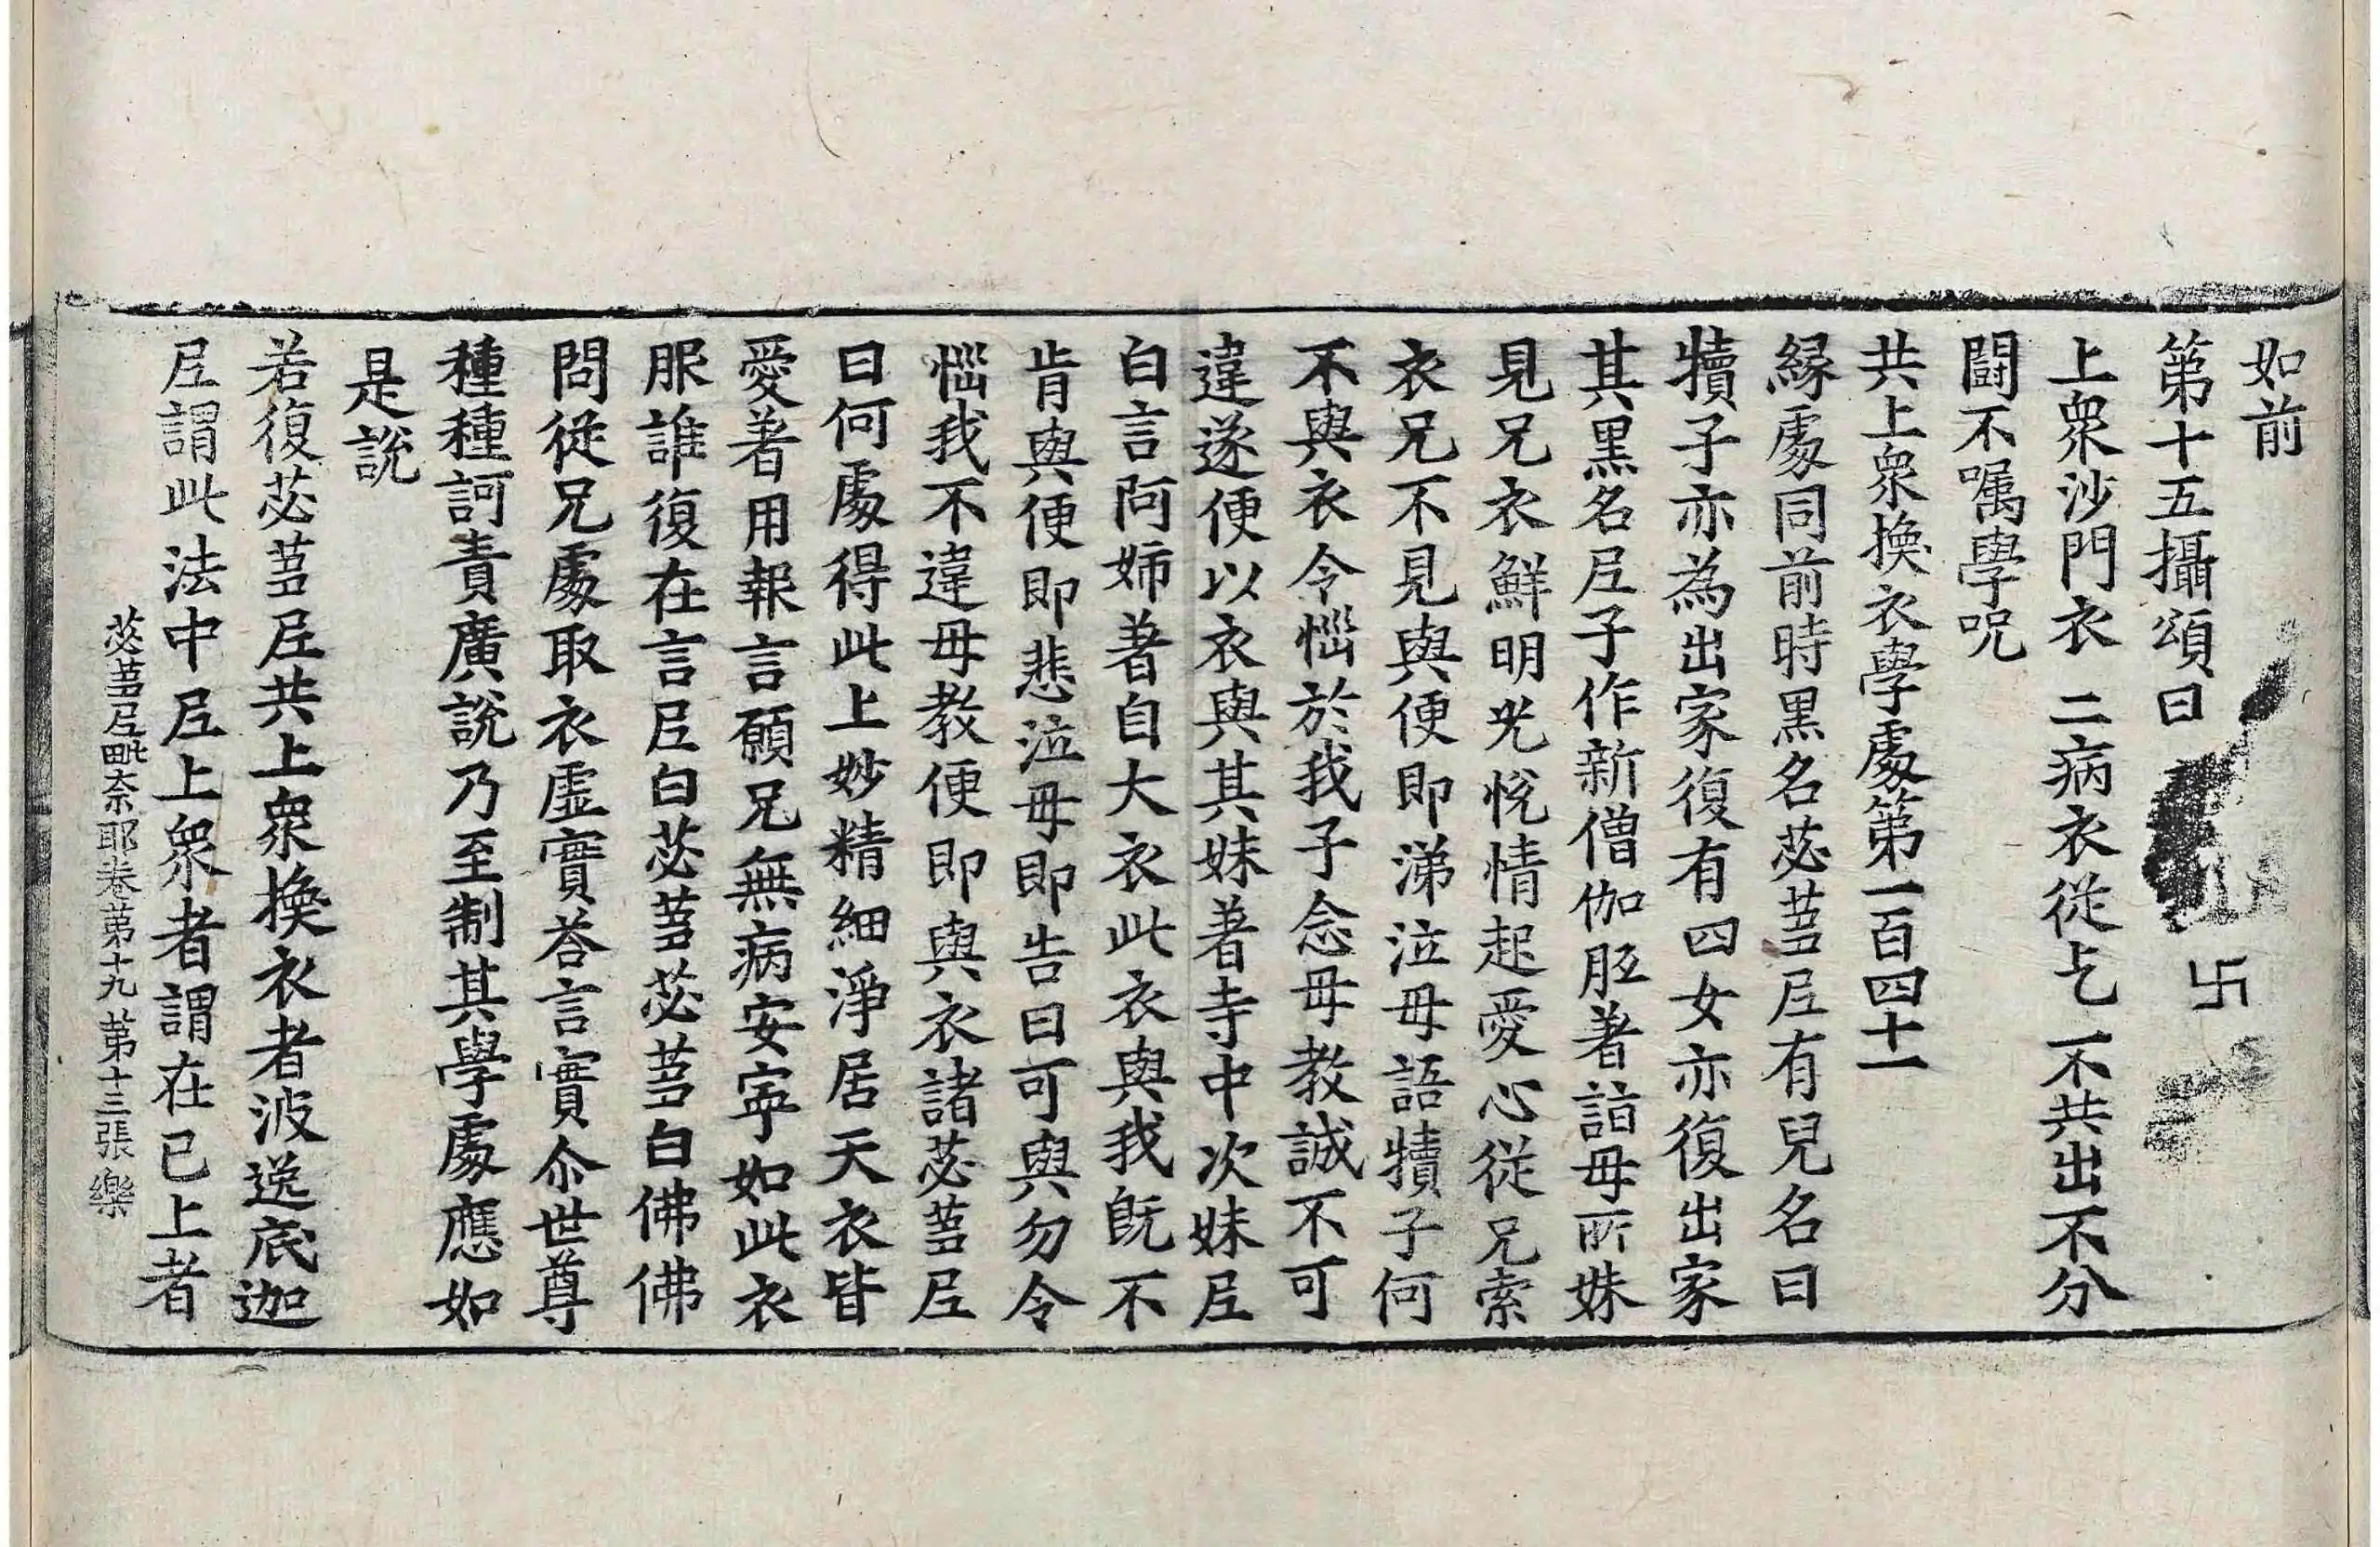 如前
第十五攝頌曰
卐
上衆沙門衣　二病衣從乞　不共出不分
鬪不嘱學呪
共上衆換衣學處第一百四十一
緣處同前時黒名苾蒭尼有兒名曰
犢子亦為出家復有四女亦復出家
其黒名尼子作新僧伽胵著詣母所妹
見兄衣鮮明光悅情起愛心從兄索
衣兄不見與便即涕泣母語犢子何
不與衣令惱於我子念母教誠不可
違遂便以衣與其妹著寺中次妹尼
白言阿姉著自大衣此衣與我旣不
肯與便即悲泣母即告曰可與勿令
惱我不違母教便即與衣諸苾蒭尼
曰何處得此上妙精細淨居天衣皆
愛著用報言願兄無病安寧如此衣
服誰復在言尼白苾蒭苾蒭白佛佛
問從兄處取衣虛實荅言實尒世尊
種種訶責廣說乃至制其學處應如
是說
若復苾蒭尼共上衆換衣者波逸底迦
尼謂此法中尼上衆者謂在已上者
苾蒭尼毗奈耶卷第十九　第十三張　樂